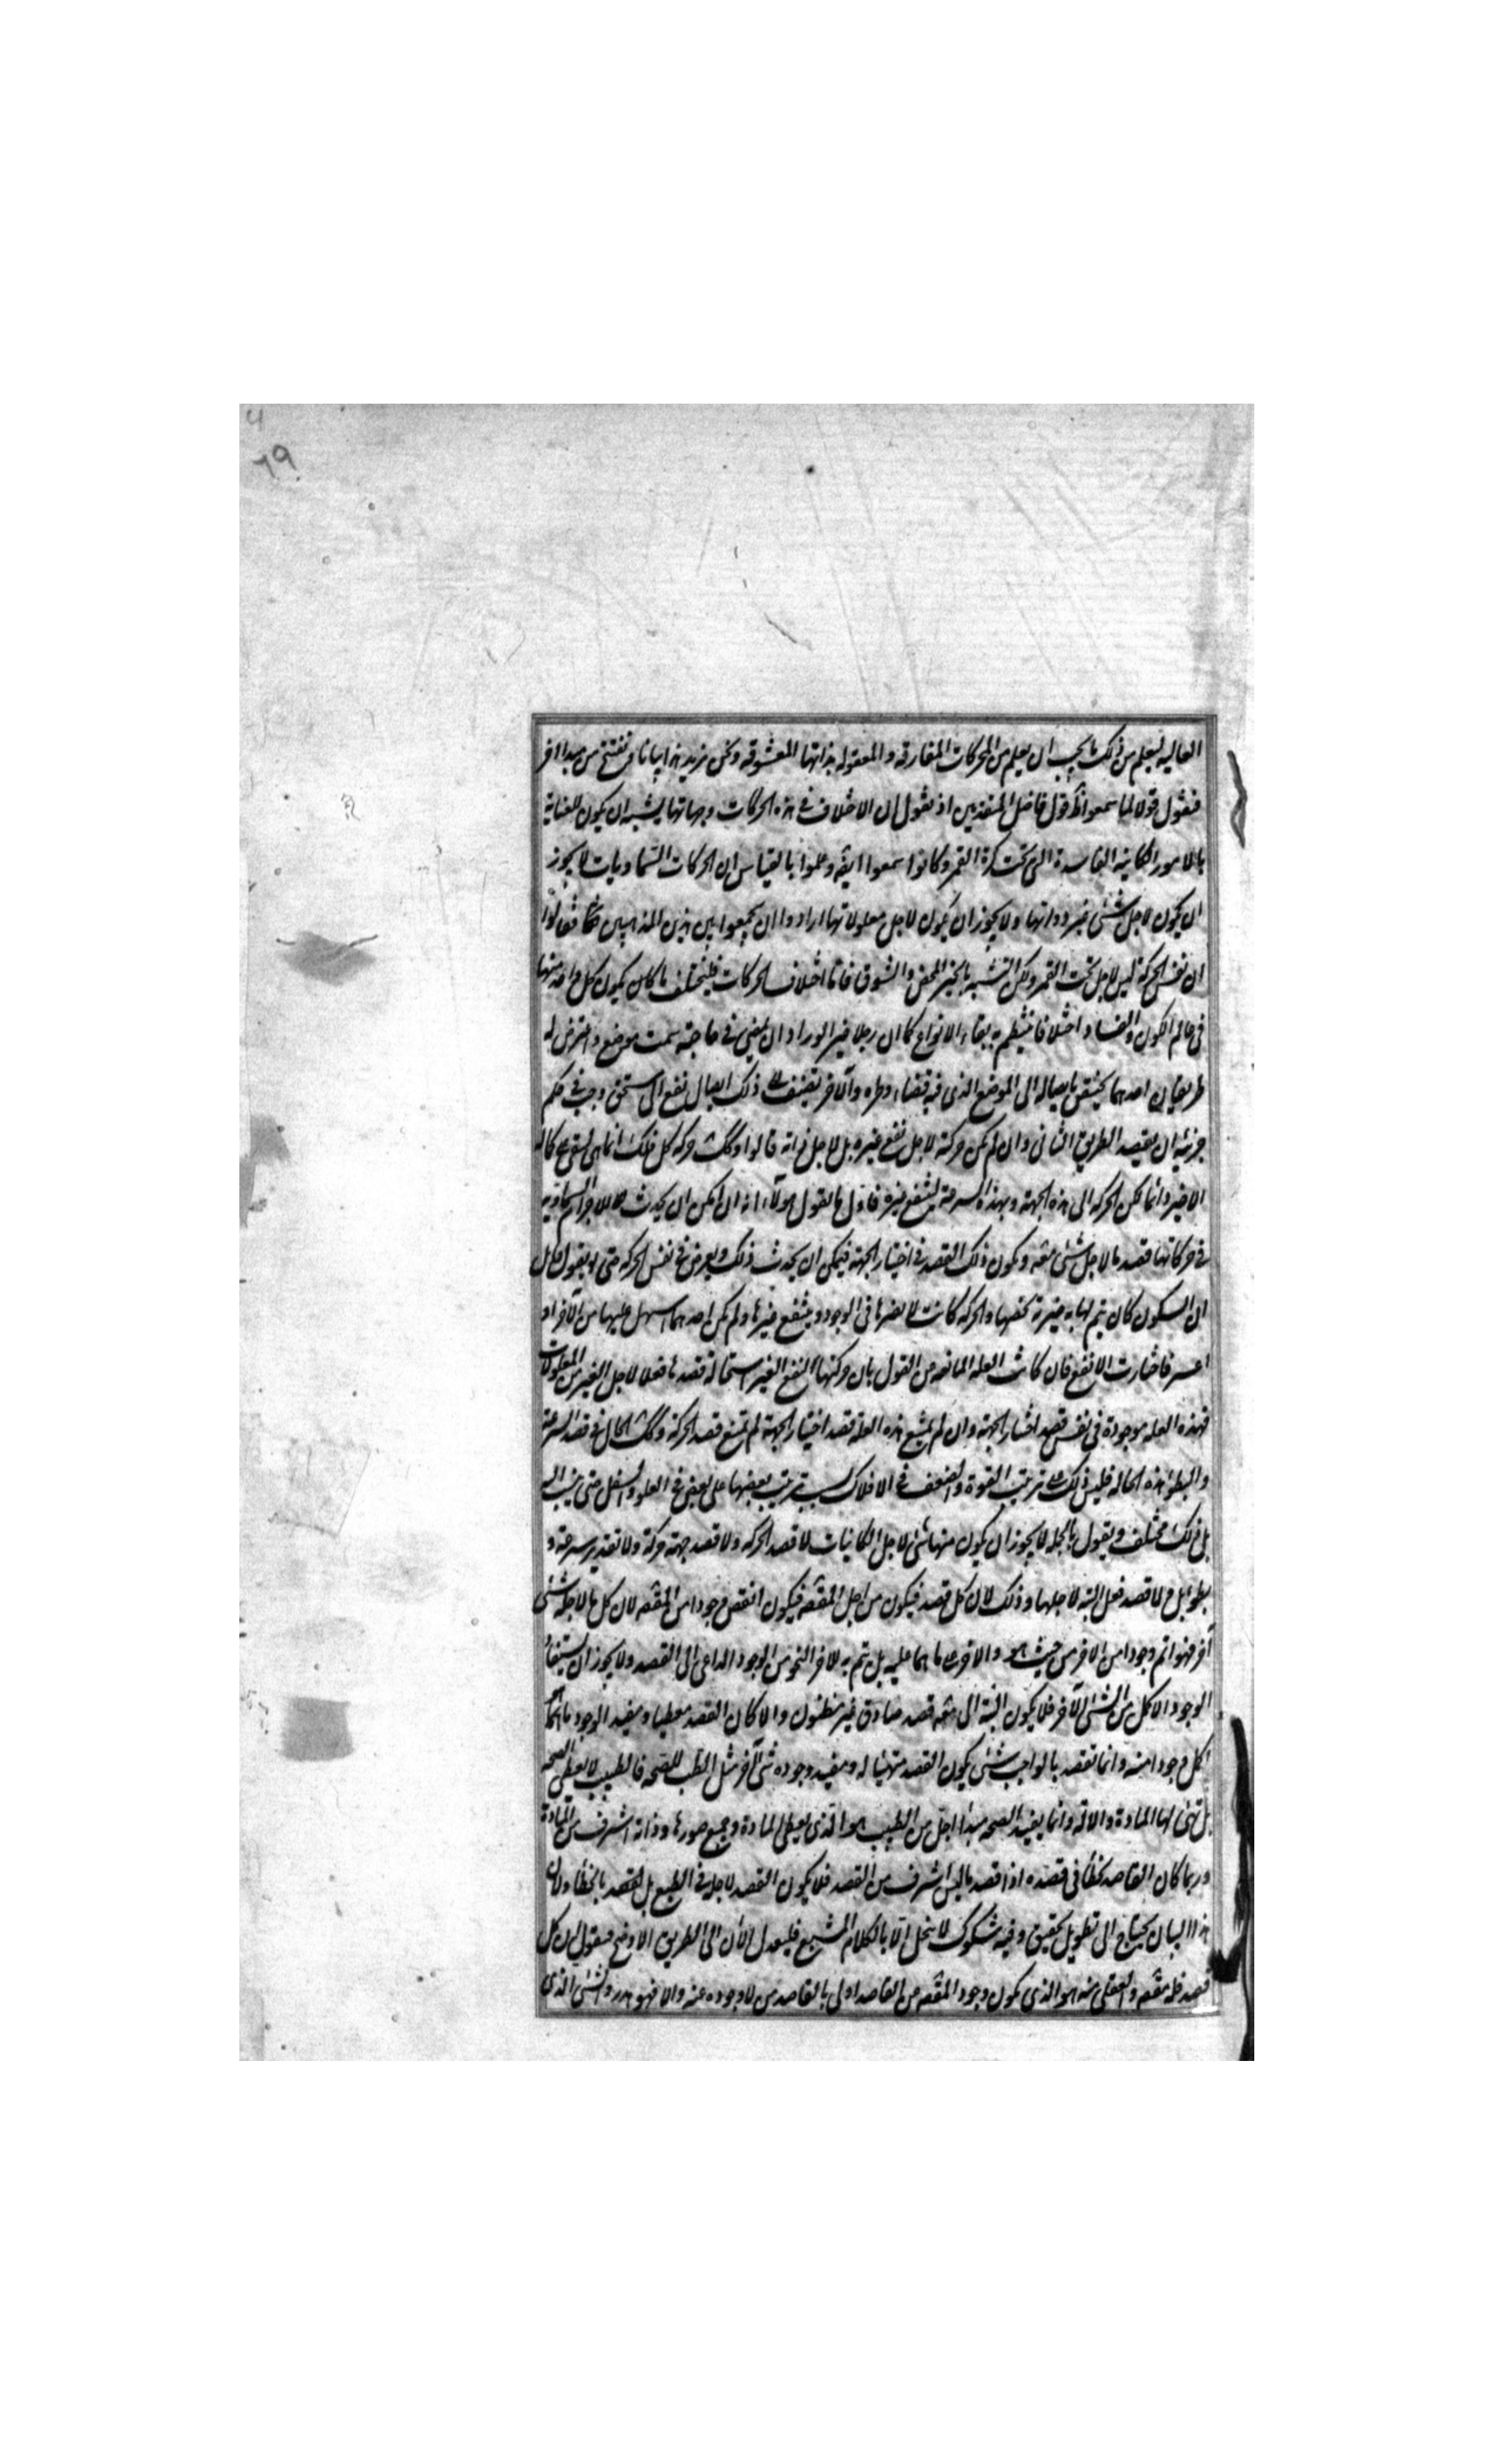 ٦٩
العاليه ليعلم من ذلك ما يجب ان يعلم من المحركات المفارقه والمعقوله بذاتها المعشوقه ونحن نزيد هذا بيانا ونفتتح من مبدا اخر
فنقول قولا لما سمعوا ظ قول فاضل المتقدمين اذ يقول ان الاختلاف فى هذه الحركات وجهاتها يشبه ان يكون للعناية
بالامور الكاينه الفاسدة التى تحت كرة القمر وكانوا سمعوا ايضه وعلموا بالقياس ان الحركات السماويات لا يجوز
ان يكون لاجل شئ غير ذواتها ولا يجوز ان يكون لاجل معلولاتها ارادوا ان يجمعوا بين هذين المذهبين فقالوا
ان نفس الحركة ليس لاجل تحت القمر ولكن التشبه بالخير المحض والشوق فاما اختلاف الحركات فليختلف ما كان يكون كل واحد منها
فى عالم الكون والفساد اختلافا ينتظم به بقاء الانواع كما ان رجلا خيرا لو اراد ان يمضى فى حاجته سمت موضع واعترض له
طريقان احدهما يختص بايصاله الى الموضع الذى فيه قضاء وطره والاخر يضيف الى ذلك ايصال نفع الى مستحق وجب فى حكم
خيريته ان يقصد الطريق الثانى وان لم يكن حركته لاجل نفع غيره بل لاجل ذاته قالوا وكك حركه كل فلك انما هى ليبقى على كماله
الاخير دائما لكن الحركه الى هذه الجهة وبهذه السرعة لينتفع غيره فاول ما يقول هؤلاء انه ان امكن ان يحدث للاجرام السماويه
فى حركاتها قصد ما لاجل شئ معه ويكون ذلك القصد فى اختيار الجهة فيمكن ان يحدث ذلك ويعرض فى نفس الحركه حتى لو يقول قايل
ان السكون كان يتم لها به خيرية تخصها والحركه كانت لا يضرها فى الوجود وينتفع غيرها ولم يكن احدهما اسهل عليها من الاخر او
اعسر فاختارت الانفع فان كانت العله المانعه من القول بان حركتها لنفع الغير استحالة قصدها فعلا لاجل الغير من المعلولات
فهذه العله موجودة فى نفس قصد اختيار الجهة وان لم يمنع هذه العله قصد اختيار الجهة لم يمنع قصد الحركة وكك الحال فى قصد السرعة
والبطؤ هذه الحاله فليس ذلك على ترتيب القوة والضعف فى الافلاك بسبب ترتيب بعضها على بعض فى العلو والسفل حتى ينسب اليه
بل ذلك مختلف ويقول بالجمله لا يجوز ان يكون منها شئ لاجل الكاينات لا قصد الحركه ولا قصد جهة حركة ولا تقدير سرعة و
بطؤ بل ولا قصد فعل البته لاجلها وذلك لان كل قصد فيكون من اجل المقصه فيكون انقص وجودا من المقصه لان كل ما لاجله شئ
آخر فهو اتم وجودا من الاخر من حيث هو والاخر على ما هما عليه بل يتم به للاخر النحو من الوجود الداعى الى القصد ولا يجوز ان يستفاد
الوجود الاكمل من الشئ الآخر فلا يكون البتة الى معه قصد صادق غير مظنون والا كان القصد معطيا ومفيد الوجود ما هو
اكمل وجودا منه وانما تقصد بالواجب شئ يكون القصد مهيئا له ومفيد وجوده شئ آخر مثل الطب للصحه فالطبيب لا يعطى الصحه
بل تهئ لها المادة والالة وانما يفيد الصحه مبدأ اجل من الطبيب هو الذى يعطى المادة وجميع صورها وذاته اشرف من المادة
وربما كان القاصد مخطأ فى قصده اذا قصد ما ليس اشرف من القصد فلا يكون القصد لاجله فى الطبع بل القصد بالخطأ ولان
هذا البيان يحتاج الى تطويل تحقيق وفيه شكوك لا ينحل الا بالكلام المشبع فليعدل الآن الى الطريق الاوضح فنقول ان كل
قصد فله مقصه والعقلى منه هو الذى يكون وجود المقصه من القاصد اولى بالقاصد من لا وجوده عنه والا فهو هدر والشئ الذى